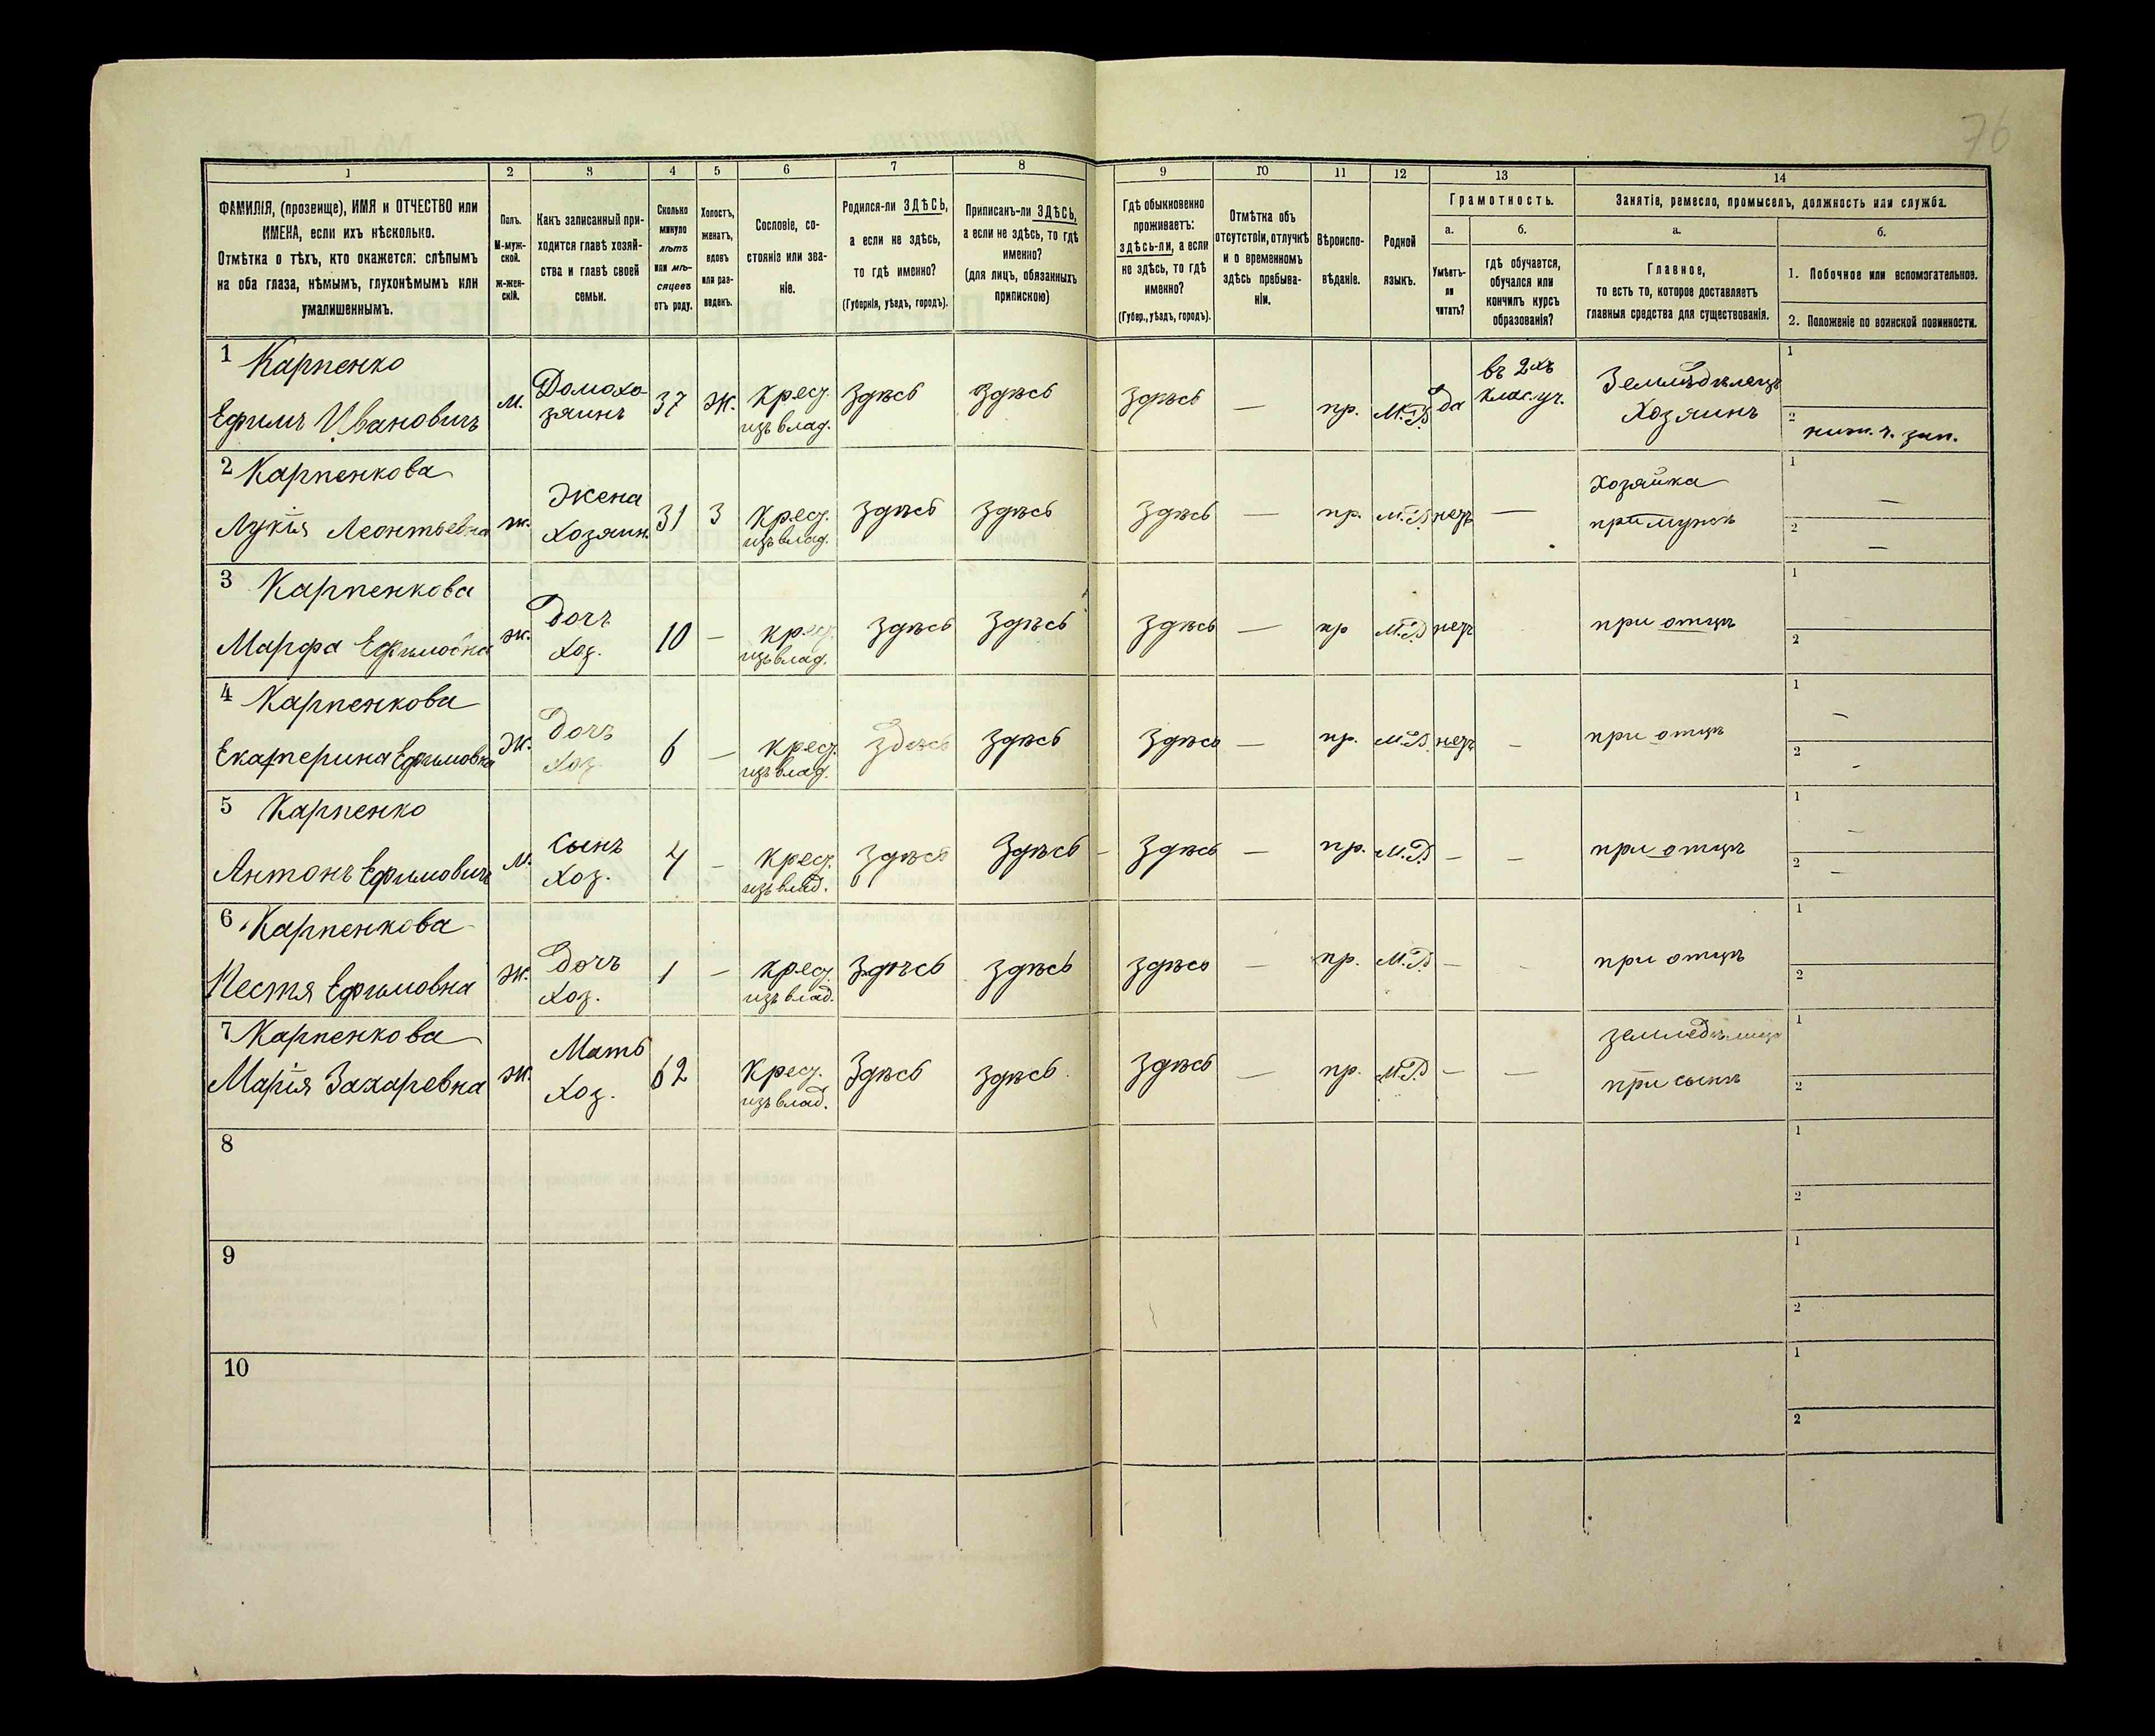 76
1 2 3 4 5 6 7 8 9 10 11 12 13 14
ФАМИЛІЯ, (прозвище), ИМЯ и ОТЧЕСТВО или
ИМЕНА, если ихъ нѣсколько.
Отмѣтка о тѣхъ, кто окажется: слѣпымъ
на оба глаза, нѣмымъ, глухонѣмымъ или
умалишеннымъ.
Полъ.
М-муж-
ской.
ж-жен-
скій.
Какъ записанный при-
ходится главѣ хозяй-
ства и главѣ своей
семьи.
Сколько
минуло
лѣтъ
или мѣ-
сяцевъ
отъ роду.
Холостъ,
женатъ,
вдовъ
или раз-
веденъ.
Сословіе, со-
стояніе или зва-
ніе.
Родился-ли ЗДѢСЬ,
а если не здѣсь,
то гдѣ именно?
(Губернія, уѣздъ, городъ).
Приписанъ-ли ЗДѢСЬ,
а если не здѣсь, то гдѣ
именно?
(для лицъ, обязанныхъ
припискою)
Гдѣ обыкновенно
проживаетъ:
здѣсь-ли, а если
не здѣсь, то гдѣ
именно?
(Губер., уѣздъ, городъ).
Отмѣтка объ
отсутствіи, отлучкѣ
и о временномъ
здѣсь пребыва-
ніи.
Вѣроиспо-
вѣданіе.
Родной
языкъ.
Грамотность.
а.
Умѣетъ-
ли
читать?
б.
гдѣ обучается,
обучался или
кончилъ курсъ
образованія?
Занятіе, ремесло, промыселъ, должность или служба.
а.
Главное,
то есть то, которое доставляетъ
главныя средства для существованія.
б.
1. Побочное или вспомогательное.
2. Положеніе по воинской повинности.
1 Карпенко
Ефимъ Ивановичъ
м.
Домохо-
зяинъ
37
Ж.
Крест.
изъ влад.
Здѣсь
здѣсь
здѣсь
—
пр.
М.Р.
да
въ 2хъ
клас. уч.
Земледѣлецъ
Хозяинъ
1
2 ниж. ч. зап.
2 Карпенкова
Лукія Леонтьевна
ж.
Жена
Хозяин.
31
З
Крест.
изъ влад.
здѣсь
здѣсь
здѣсь
—
пр.
М.Р.
нетъ
—
Хозяйка
при мужѣ
1 —
2 —
3 Карпенкова
Марфа Ефимовна
ж.
Дочь
Хоз.
10
—
крест.
изъ влад.
здѣсь
здѣсь
здѣсь
—
пр
М.Р.
нетъ
при отцѣ
1 —
2
4 Карпенкова
Екатерина Ефимовна
ж.
Дочь
Хоз
6
—
крест.
изъ влад.
здесь
здѣсь
здѣсь
—
пр.
М.Р.
нетъ
—
при отцѣ
1 —
2 -
5 Карпенко
Антонъ Ефимовичъ
м.
Сынъ
Хоз.
4
—
Крест.
изъ влад.
здѣсь
здѣсь
здѣсь
—
пр.
М.Р.
—
—
при отцѣ
1 —
2 —
6 Карпенкова
Ефимовна
ж.
Дочь
Хоз.
1
—
крест.
изъ влад.
здѣсь
здѣсь
здѣсь
—
пр.
М.Р.
—
-
при отцѣ
1
2
7 Карпенкова
Марія Захаревна
ж.
Мать
Хоз.
62
Крест.
изъ влад.
Здѣсь
здѣсь
здѣсь
—
пр.
М.Р.
—
—
при сынѣ
1
2
8
1
2
9
1
2
10
1
2